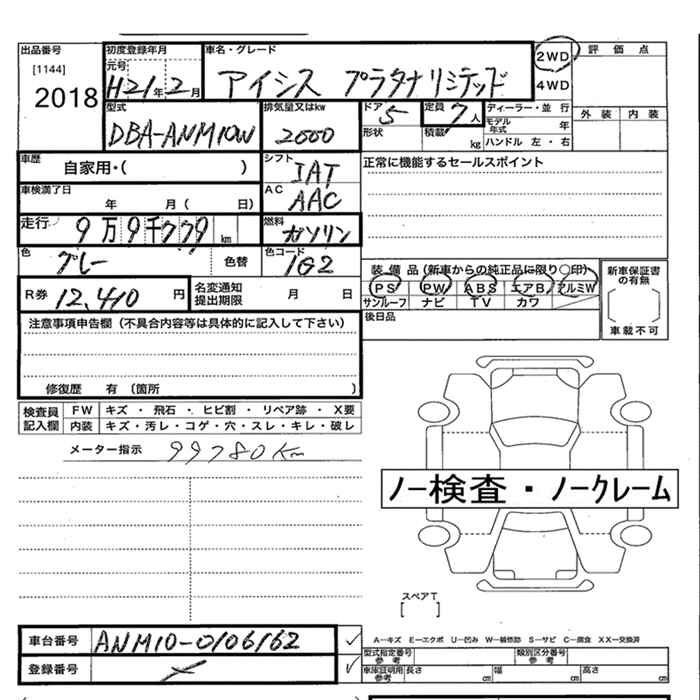 出品番号 初度登録年月 車名・グレード 評価点
[1144] 元号 2WD
2018 H21年2月 アイシス プラタナリミテッド 4WD
型式 排気量又はkw ドア 定員 ディーラー・並行 外装 内装
DBA-ANM10W 2000 5 7人 モデル年式 年
形状 積載 kg ハンドル 左・右
車歴 自家用・( ) シフト IAT 正常に機能するセールスポイント
車検満了日 年 月( 日) AC AAC
走行 9万9千779 km 燃料 ガソリン
色 グレー 色替 色コード 1G2
装備品(新車からの純正品に限り○印) 新車保証書の有無
R券 12,410円 名変通知提出期限 月 日 PS PW ABS エアB アルミW
サンルーフ ナビ TV カワ
注意事項申告欄(不具合内容等は具体的に記入して下さい) 後日品 車載不可
修復歴 有(箇所 )
検査員記入欄 FW キズ・飛石・ヒビ割・リペア跡・X要
内装 キズ・汚レ・コゲ・穴・スレ・キレ・破レ
メーター指示 99780Km
ノー検査・ノークレーム
スペアT
[ ]
車台番号 ANM10-0106162 ✓ A−キズ E−エクボ U−凹み W−補修跡 S−サビ C−腐食 XX−交換済
型式指定番号 参考 類別区分番号 参考
登録番号 ✓ 車庫証明用 参考 長さ cm 幅 cm 高さ cm